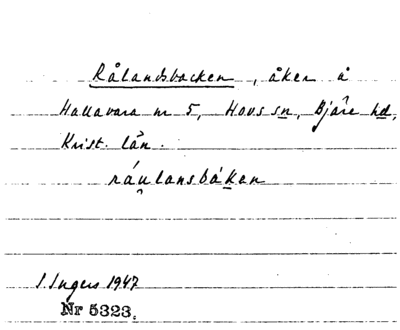 Rålandsbacken, åker å
Hallavara nr 5, Hovs sn, Bjäre hd,
Krist. län.
råu̯lansbáken
I. Ingers 1947
Nr 5323.